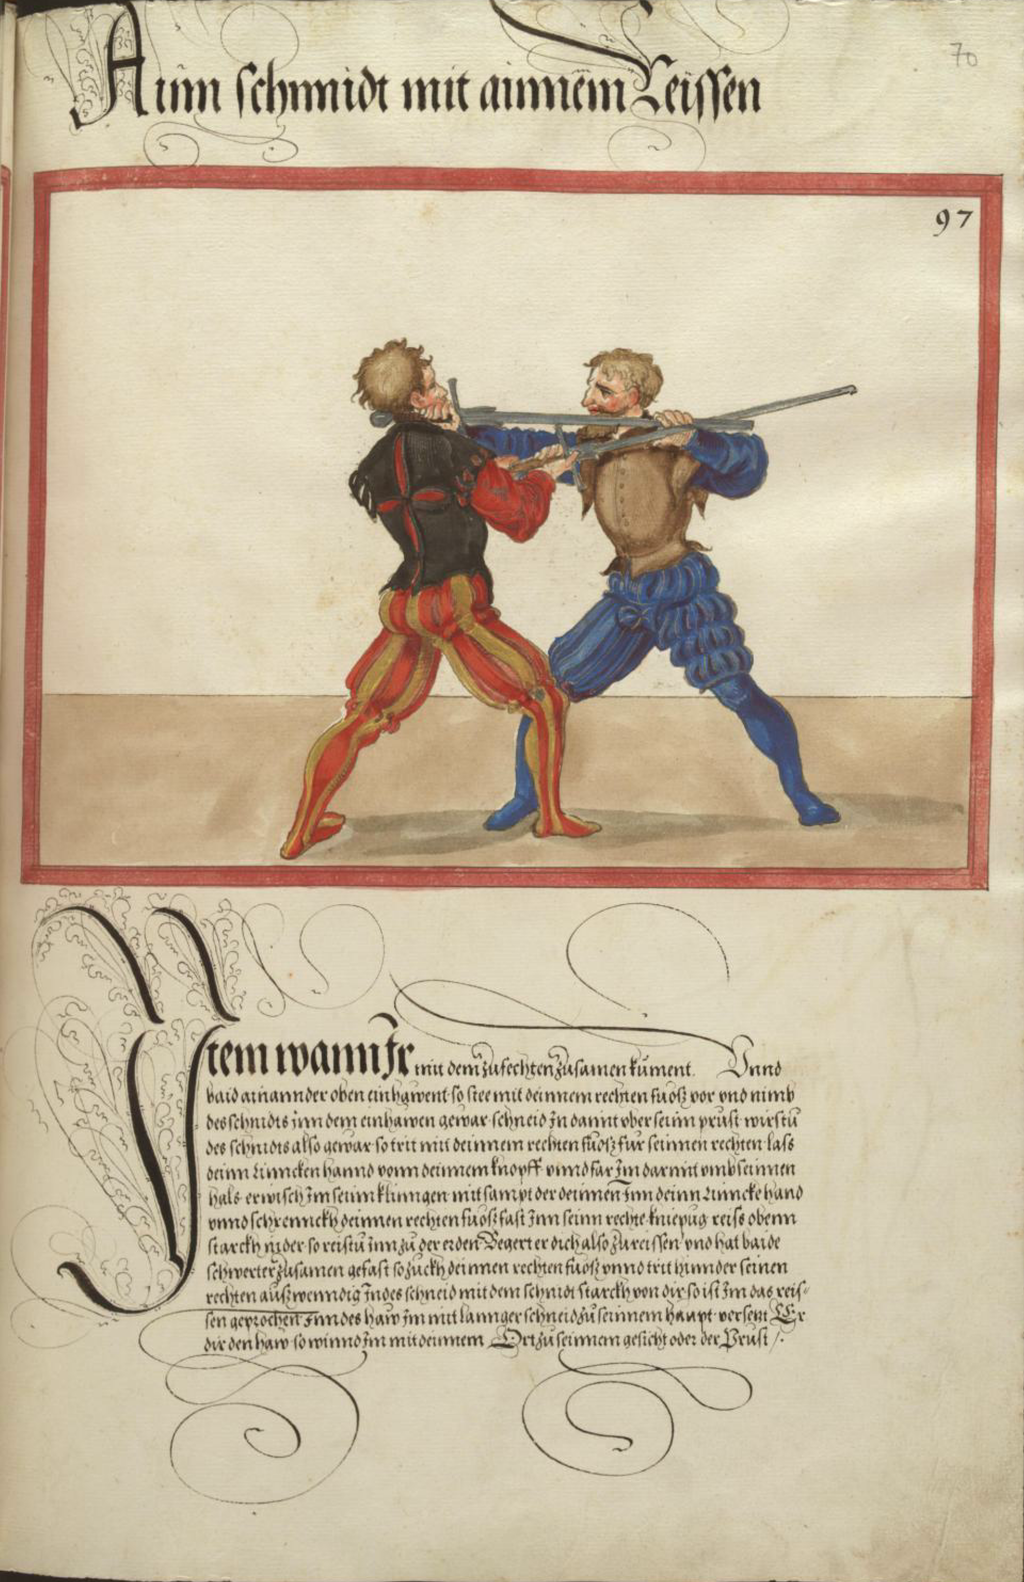 70
Ainn schnidt mit ainnem Reissen
97
Item wann Ir mit dem zufechten zusamen kument. Vnnd
baid ainannder oben einhawent so stee mit deinnem rechten fuosz vor vnd nimb
des schnidts jnn dem einhawen gewar schneid In damit vber seinn prust wirstu
des schnidts also gewar so trit mit deinnem rechten fuosz fur seinnen rechten lass
deinn Linncken hannd vonn deinnem knopff vnnd far Im darmit vmb seinnen
hals erwisch Im seinn klinngen mit sampt der deinnen Inn deinn Linncke hand
vnnd schrennckh deinnen rechten fuosz fast Inn seinn rechte kniepug reiss obenn
starckh nider so reistu Inn zu der erden Begert er dich also zu reissen vnd hat baide
schwerter zusamen gefast so zuckh deinnen rechten fuosz vnnd trit hinnder seinen
rechten auszwenndig Indes schneid mit dem schnidt starckh von dir so ist Im das reis-
sen geprochen Inndes haw Im mit lannger schneid zu seinnem haupt versetzt Er
dir den haw so winnd Im mit deinnem Ort zu seinnem gesicht oder der Prust /.